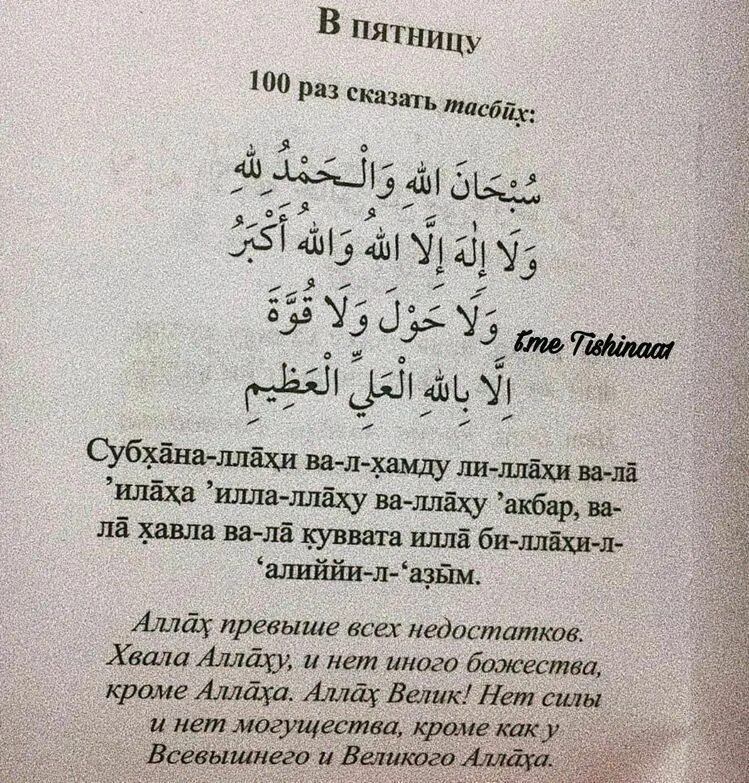 В пятницу
100 раз сказать тасбӣх̣:
سُبْحَانَ اللهِ وَالْـحَمْدُ لِلهِ
وَلَا إِلٰهَ إِلَّا اللهُ وَاللهُ أَكْبَرُ
وَلَا حَوْلَ وَلَا قُوَّةَ
t.me Tishinaa1
اِلَّا بِاللهِ الْعَلِيِّ الْعَظِيمِ
Субх̣а̄на-лла̄х̣и ва-л-х̣амду ли-лла̄х̣и ва-ла̄
’ила̄х̣а ’илла-лла̄х̣у ва-лла̄х̣у ’акбар, ва-
ла̄ х̣авла ва-ла̄ к̣уввата илла̄ би-лла̄х̣и-л-
‘алиййи-л-‘аз̣ы̄м.
Алла̄х̣ превыше всех недостатков.
Хвала Алла̄х̣у, и нет иного божества,
кроме Алла̄х̣а. Алла̄х̣ Велик! Нет силы
и нет могущества, кроме как у
Всевышнего и Великого Алла̄х̣а.